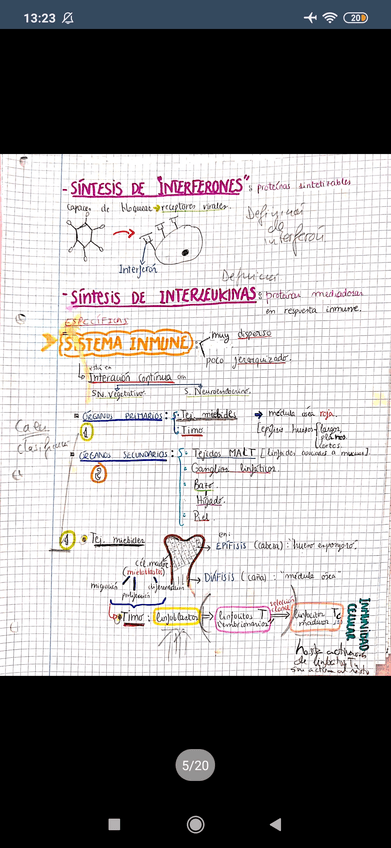 13:23
20
- SÍNTESIS DE "INTERFERONES": proteínas sintetizables
capaces de bloquear → receptores virales.
Definición
de
interferón
Interferón
Definición
- SÍNTESIS DE INTERLEUKINAS: proteínas mediadoras
en respuesta inmune.
ESPECÍFICAS
SISTEMA INMUNE:
muy disperso
poco jerarquizado.
está en
Interacción continua con
SN. Vegetativo.
S. Neuroendocrino.
= ÓRGANOS PRIMARIOS: Tej. mieloides → médula ósea roja.
1
Timo.
(epífisis huesos largos,
planos,
cortos.
Saber
clasificar
= ÓRGANOS SECUNDARIOS: Tejidos MALT [linfoides asociados a mucosas]
2
Ganglios linfáticos.
Bazo
Hígado.
Piel.
1 Tej. mieloides
en:
EPÍFISIS (cabeza): "hueso esponjoso".
DIÁFISIS (caña): "médula ósea"
cél. madre
(mieloblastos)
migración
proliferación
diferenciación
Timo: linfoblastos ⇒ linfocitos T
embrionarios
selección
clonal
linfocitos Tc
maduros
INMUNIDAD
CELULAR
hasta activación
de linfocitos T.
5/20